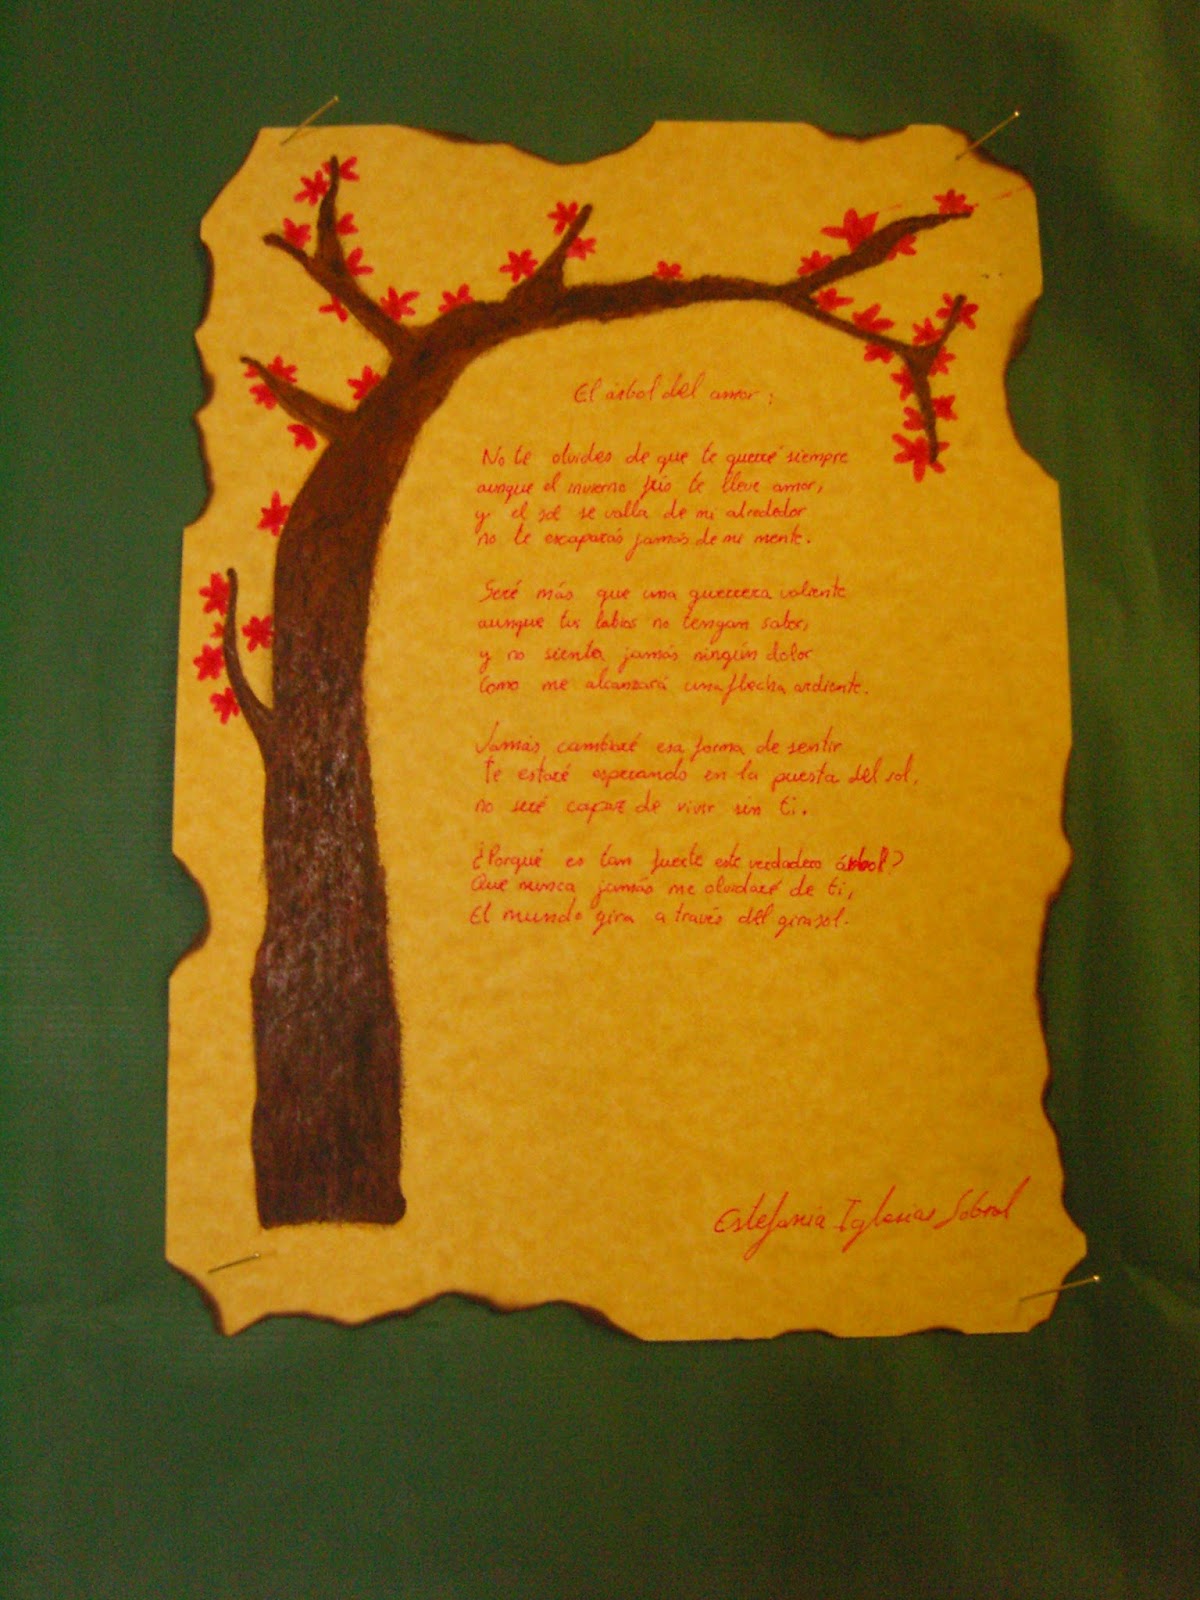 El árbol del amor:
No te olvides de que te querré siempre
aunque el invierno frío te lleve amor,
y el sol se valla de mi alrededor
no te escaparás jamás de mi mente.
Seré más que una guerrera valiente
aunque tus labios no tengan sabor,
y no sienta jamás ningún dolor
como me alcanzará una flecha ardiente.
Jamás cambiaré esa forma de sentir
te estaré esperando en la puesta del sol,
no seré capaz de vivir sin ti.
¿Porqué es tan fuerte este verdadero árbol?
Que nunca jamás me olvidaré de ti,
El mundo gira a través del girasol.
Estefania Iglesias Sobral